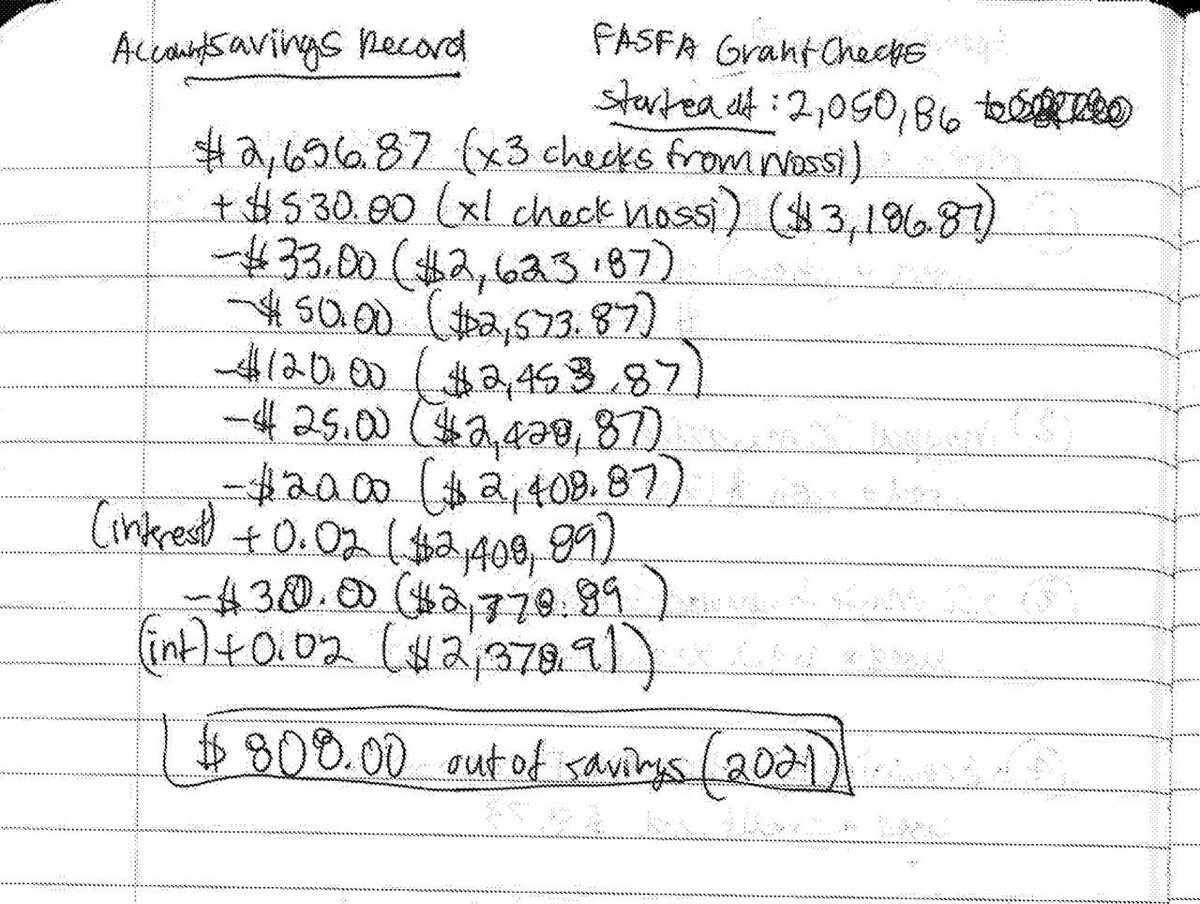 Account Savings Record
FASFA Grant Checks
started at: 2,050,86 to
$2,656.87 (x3 checks from Nossi)
+ $530.00 (x1 check nossi) ($3,186.87)
-$33.00 ($2,623.87)
-$50.00 ($2,573.87)
-$120.00 ($2,453.87)
-$25.00 ($2,428,87)
-$20.00 ($2,408.87)
(interest) +0.02 ($2,408,89)
-$30.00 ($2,378.89)
(int) +0.02 ($2,378.91)
$808.00 out of savings (2021)